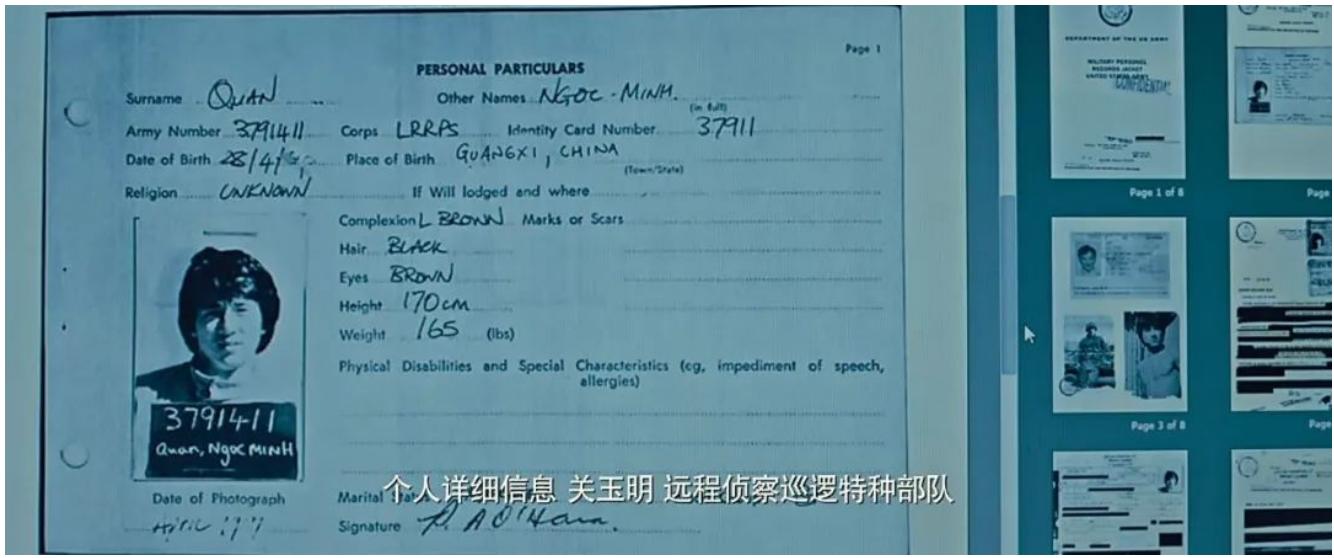 Page 1
PERSONAL PARTICULARS
Surname QUAN Other Names NGOC-MINH.
(in full)
Army Number 3791411 Corps LRRPS Identity Card Number 37911
Date of Birth 28/4/ Place of Birth GUANGXI, CHINA
(Town/State)
Religion UNKNOWN If Will lodged and where
Complexion L BROWN Marks or Scars
Hair BLACK
Eyes BROWN
Height 170cm
Weight 165 (lbs)
Physical Disabilities and Special Characteristics (eg, impediment of speech,
allergies)
3791411
Quan, Ngoc MINH
Date of Photograph
Marital
个人详细信息 关玉明 远程侦察巡逻特种部队
Signature P. A O'Hara.
DEPARTMENT OF THE US ARMY
MILITARY PERSONNEL
RECORDS JACKET
UNITED STATES ARMY
CONFIDENTIAL
Page 1 of 8
Page
Page 3 of 8
Page